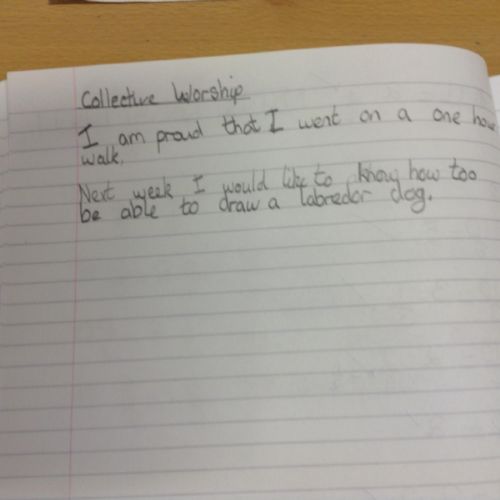 Collective Worship
I am proud that I went on a one hour
walk.
Next week I would like to know how too
be able to draw a labredor dog.